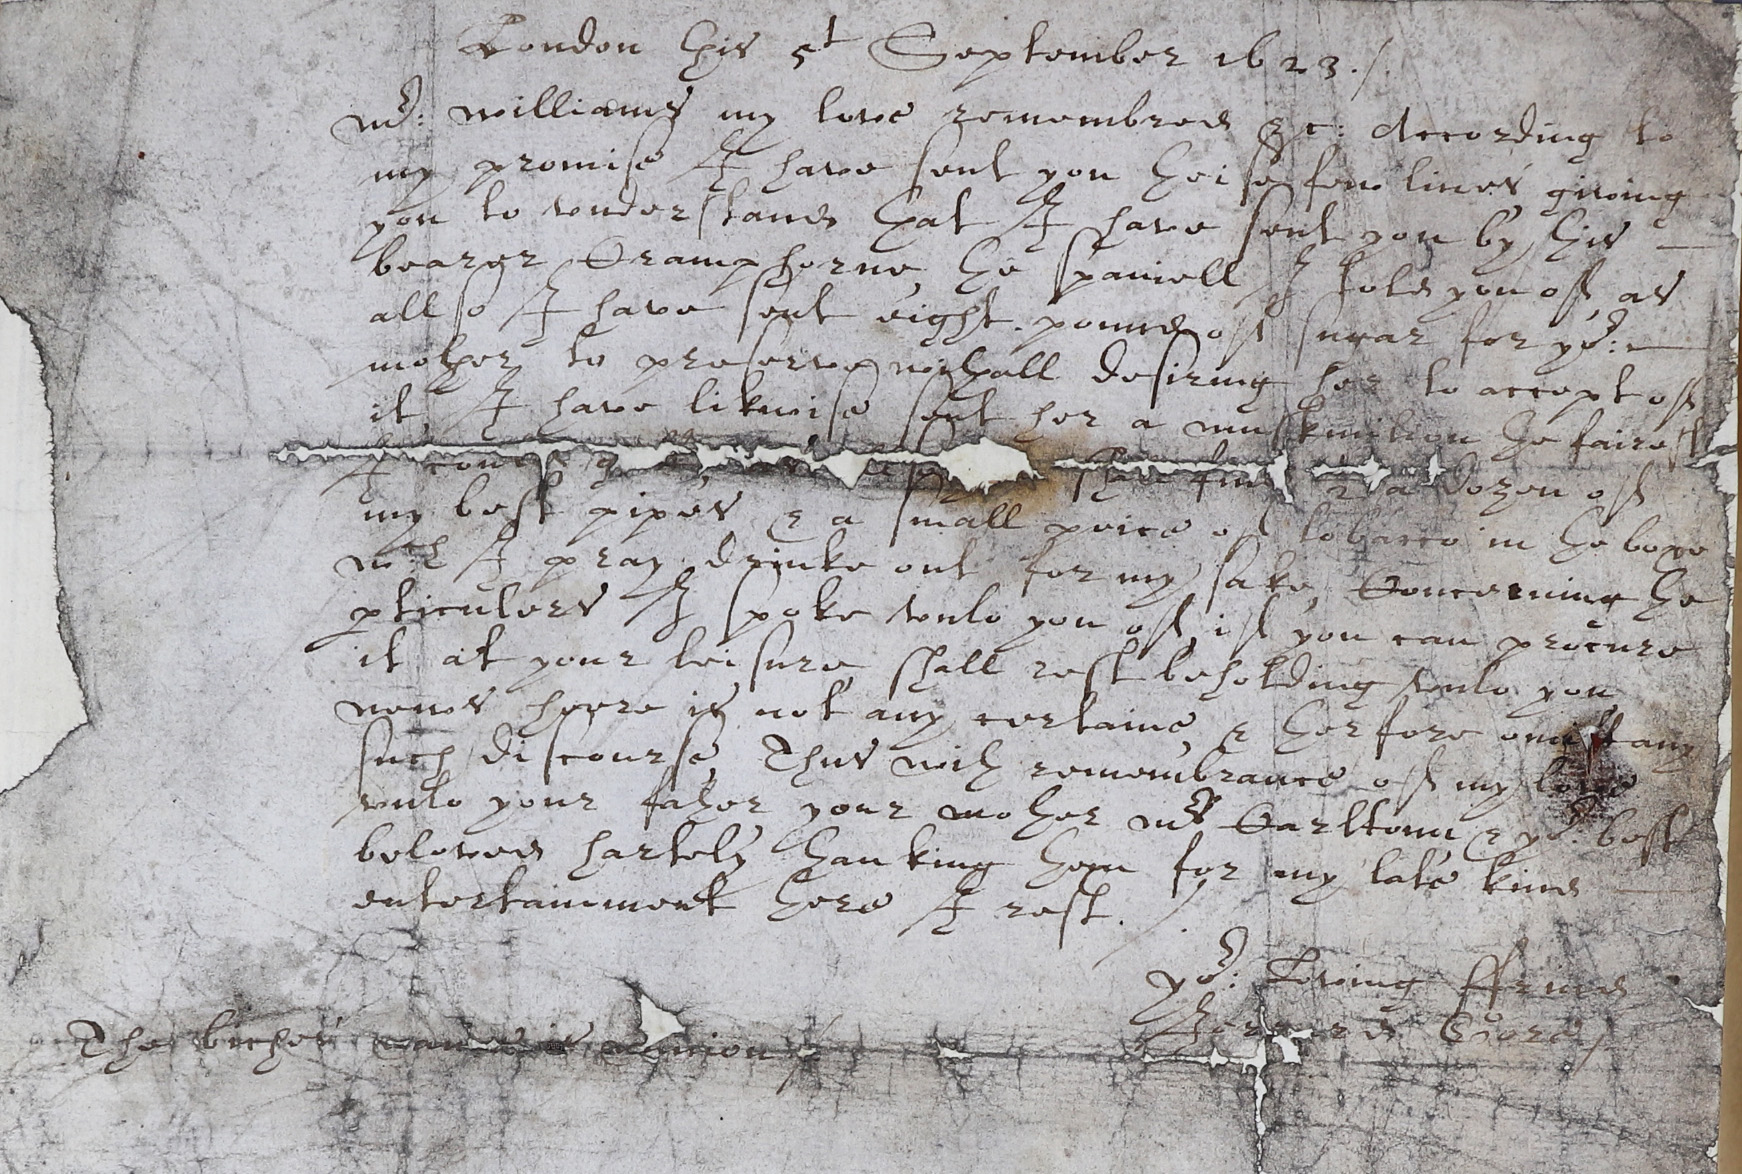 London this 5t September 1623 ./.
Mr: Williams my love remembred &c: According to
my promise I have sent you theise few lines giving
you to understand that I have sent you by this
bearer Cramphorne the spaniell I told you off, as
allso I have sent eight pound off sugar for yor:
mother to preserve withall desiring her to accept off
it, I have likwise sent her a muskmilion the fairest
I could shall find & a dozen off
my best pipes, & a small peice off tobacco in the boxe
wch I pray drinke out for my sake, Concerning the
pticulers I spoke unto you off, iff you can procure
it at your leisure, shall rest beholding unto you
news heere is not any certaine, & therfore omitt any
such discourse, Thus with remembrance off my love
unto your father your mother Mrs Carltonn & yor: best
beloved hartely thanking them for my late kind
entertainment there I rest. /.
yor: Loving ffriend
Gore /
The biches name is